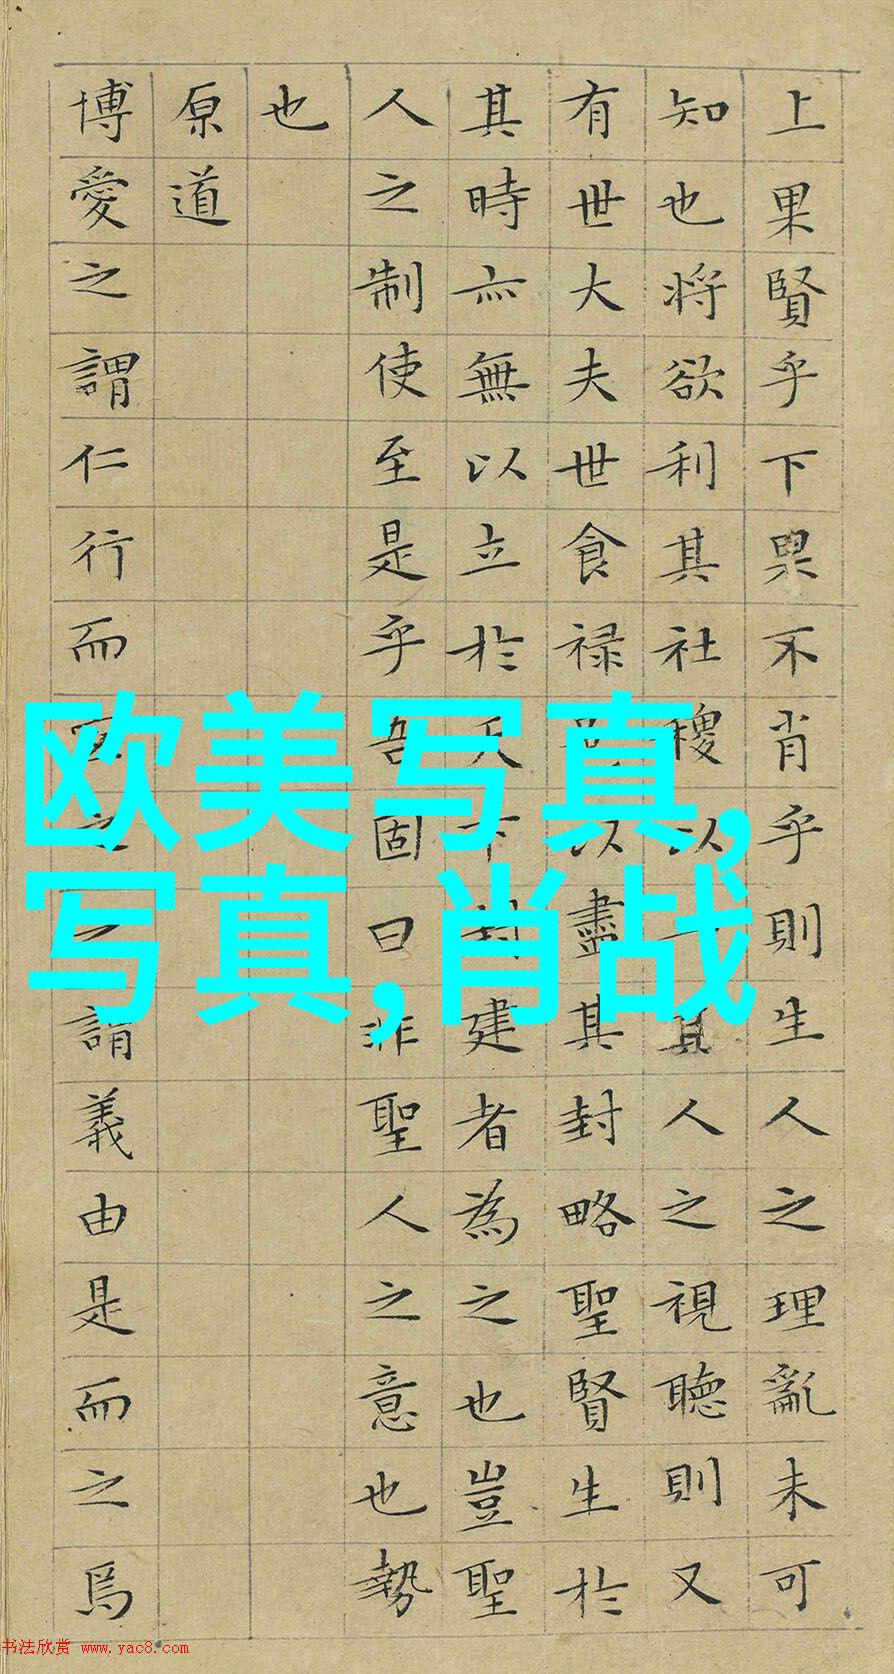 上果賢乎下果不肖乎則生人之理亂未可
知也将欲利其社稷以一其人之視聴則又
有世大夫世食禄以盡其封略聖賢生於
其時亦無以立於天下封建者為之也豈聖
人之制使至是乎吾固曰非聖人之意也勢
也
原道
博愛之謂仁行而宜之之謂義由是而之焉
欧美写真,
写真,肖战
书法欣赏 www.yac8.com